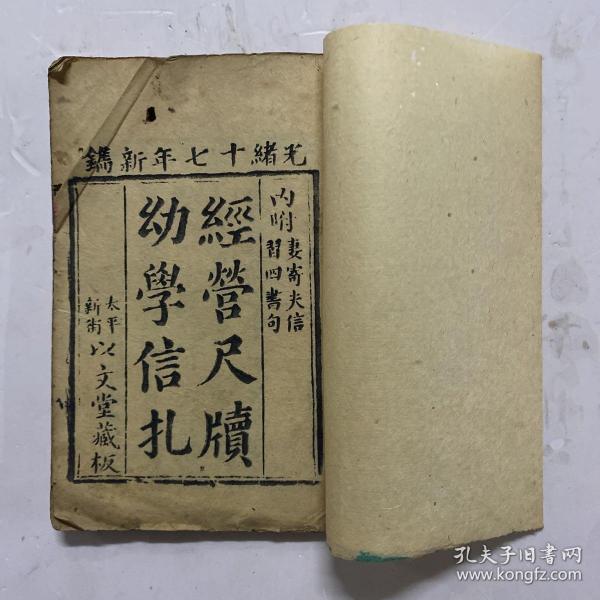 光緒十七年新鐫
內附妻寄夫信
習四書句
經營尺牘
幼學信札
太平新街以文堂藏板
孔夫子旧书网
www.kongfz.com